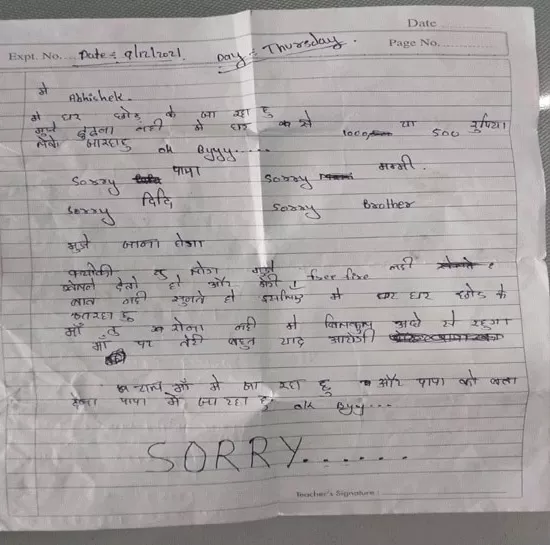 Date
Expt. No.... Date = 9/12/2021 Day = Thursday. Page No.
मे
Abhishek.
मे घर छोड़ के जा रहा हु
मुझे ढुढना नही मे घर से 1000 या 500 रुपिया
लेके जारहाहु ok Byyy.....
Sorry पापा Sorry मम्मी.
Sorry दिदि Sorry Brother
मुझे जाना होगा
तु लोग मुझे free fire नही
खेलने देते हो और मेरी
बात नही सुनते हो इसलिए मे घर छोड के
जारहा हु
माँ तु रोना नही मे बिलकुल अछे से रहुगा
माँ पर तेरी बहुत याद आयेगी
चल माँ मे जा रहा हु और पापा को बता
देना पापा मे जा रहा हु ok Byy...
SORRY......
Teacher's Signature :